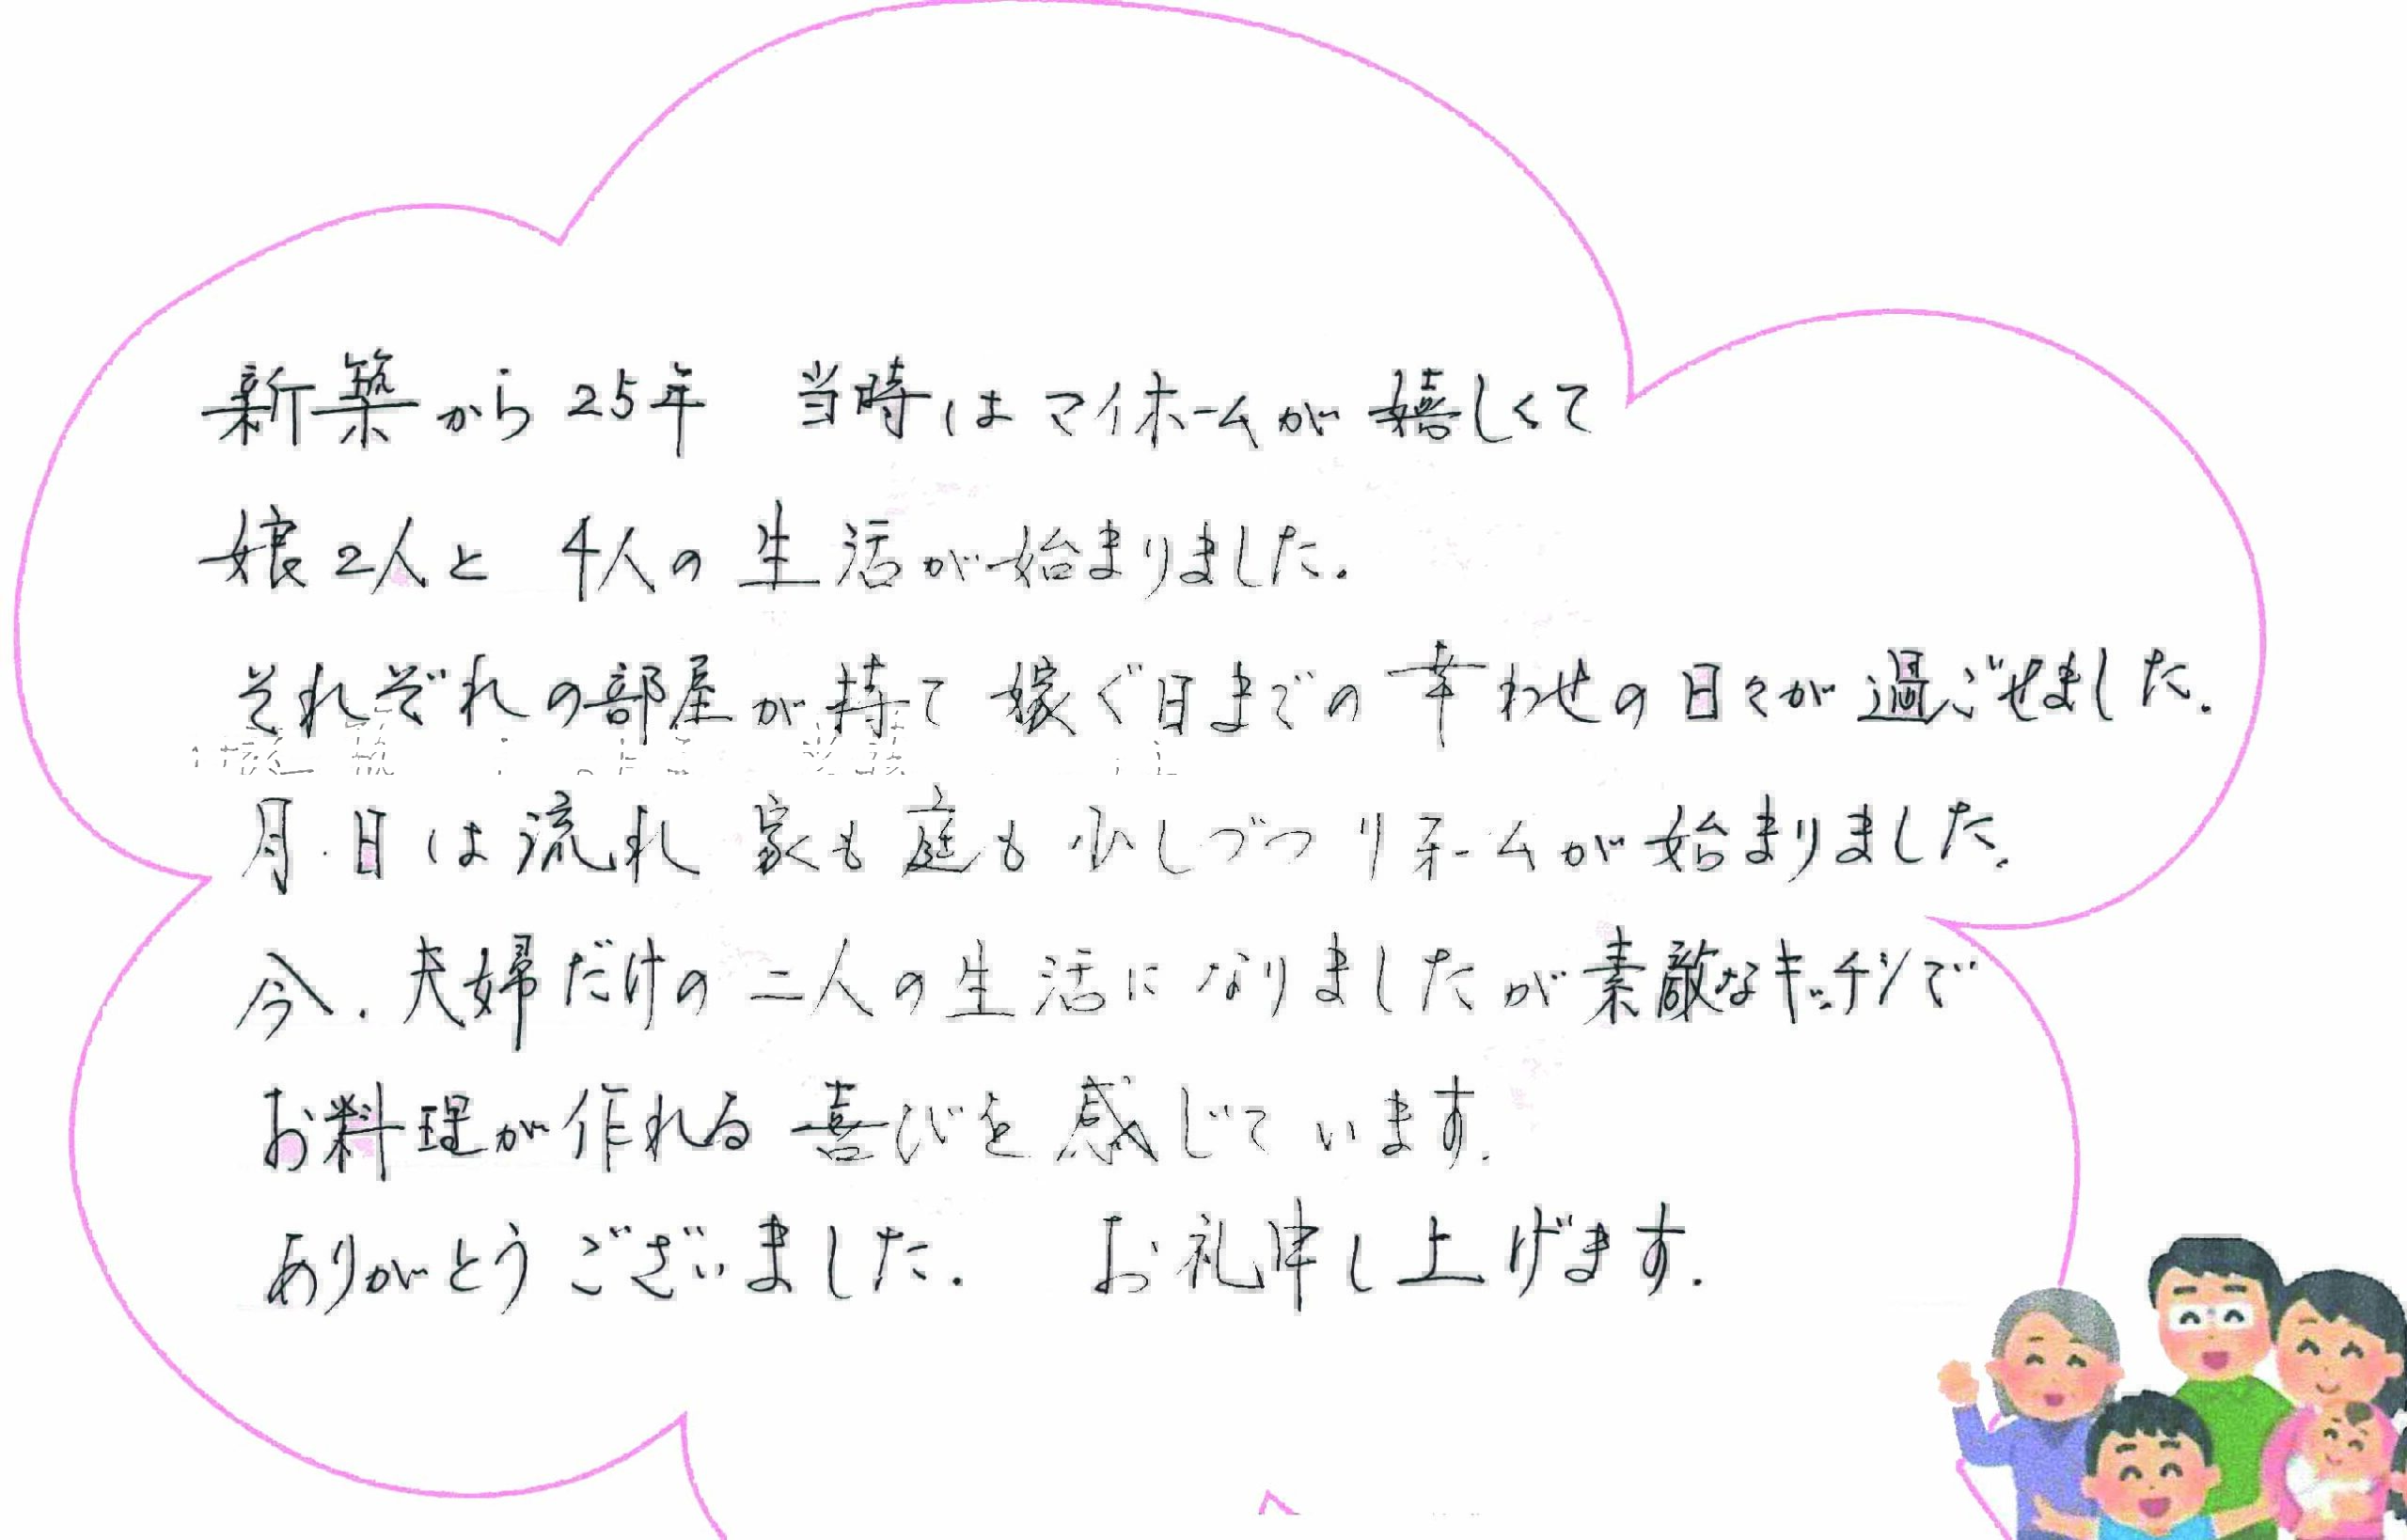 新築から25年　当時はマイホームが嬉しくて
娘2人と　4人の生活が始まりました.
それぞれの部屋が持て 嫁ぐ日までの幸わせの日々が過ごせました.
月日は流れ 家も庭も少しづつリホームが始まりました.
今.夫婦だけの二人の生活になりましたが素敵なキッチンで
お料理が作れる喜びを感じています.
ありがとうございました.　お礼申し上げます.